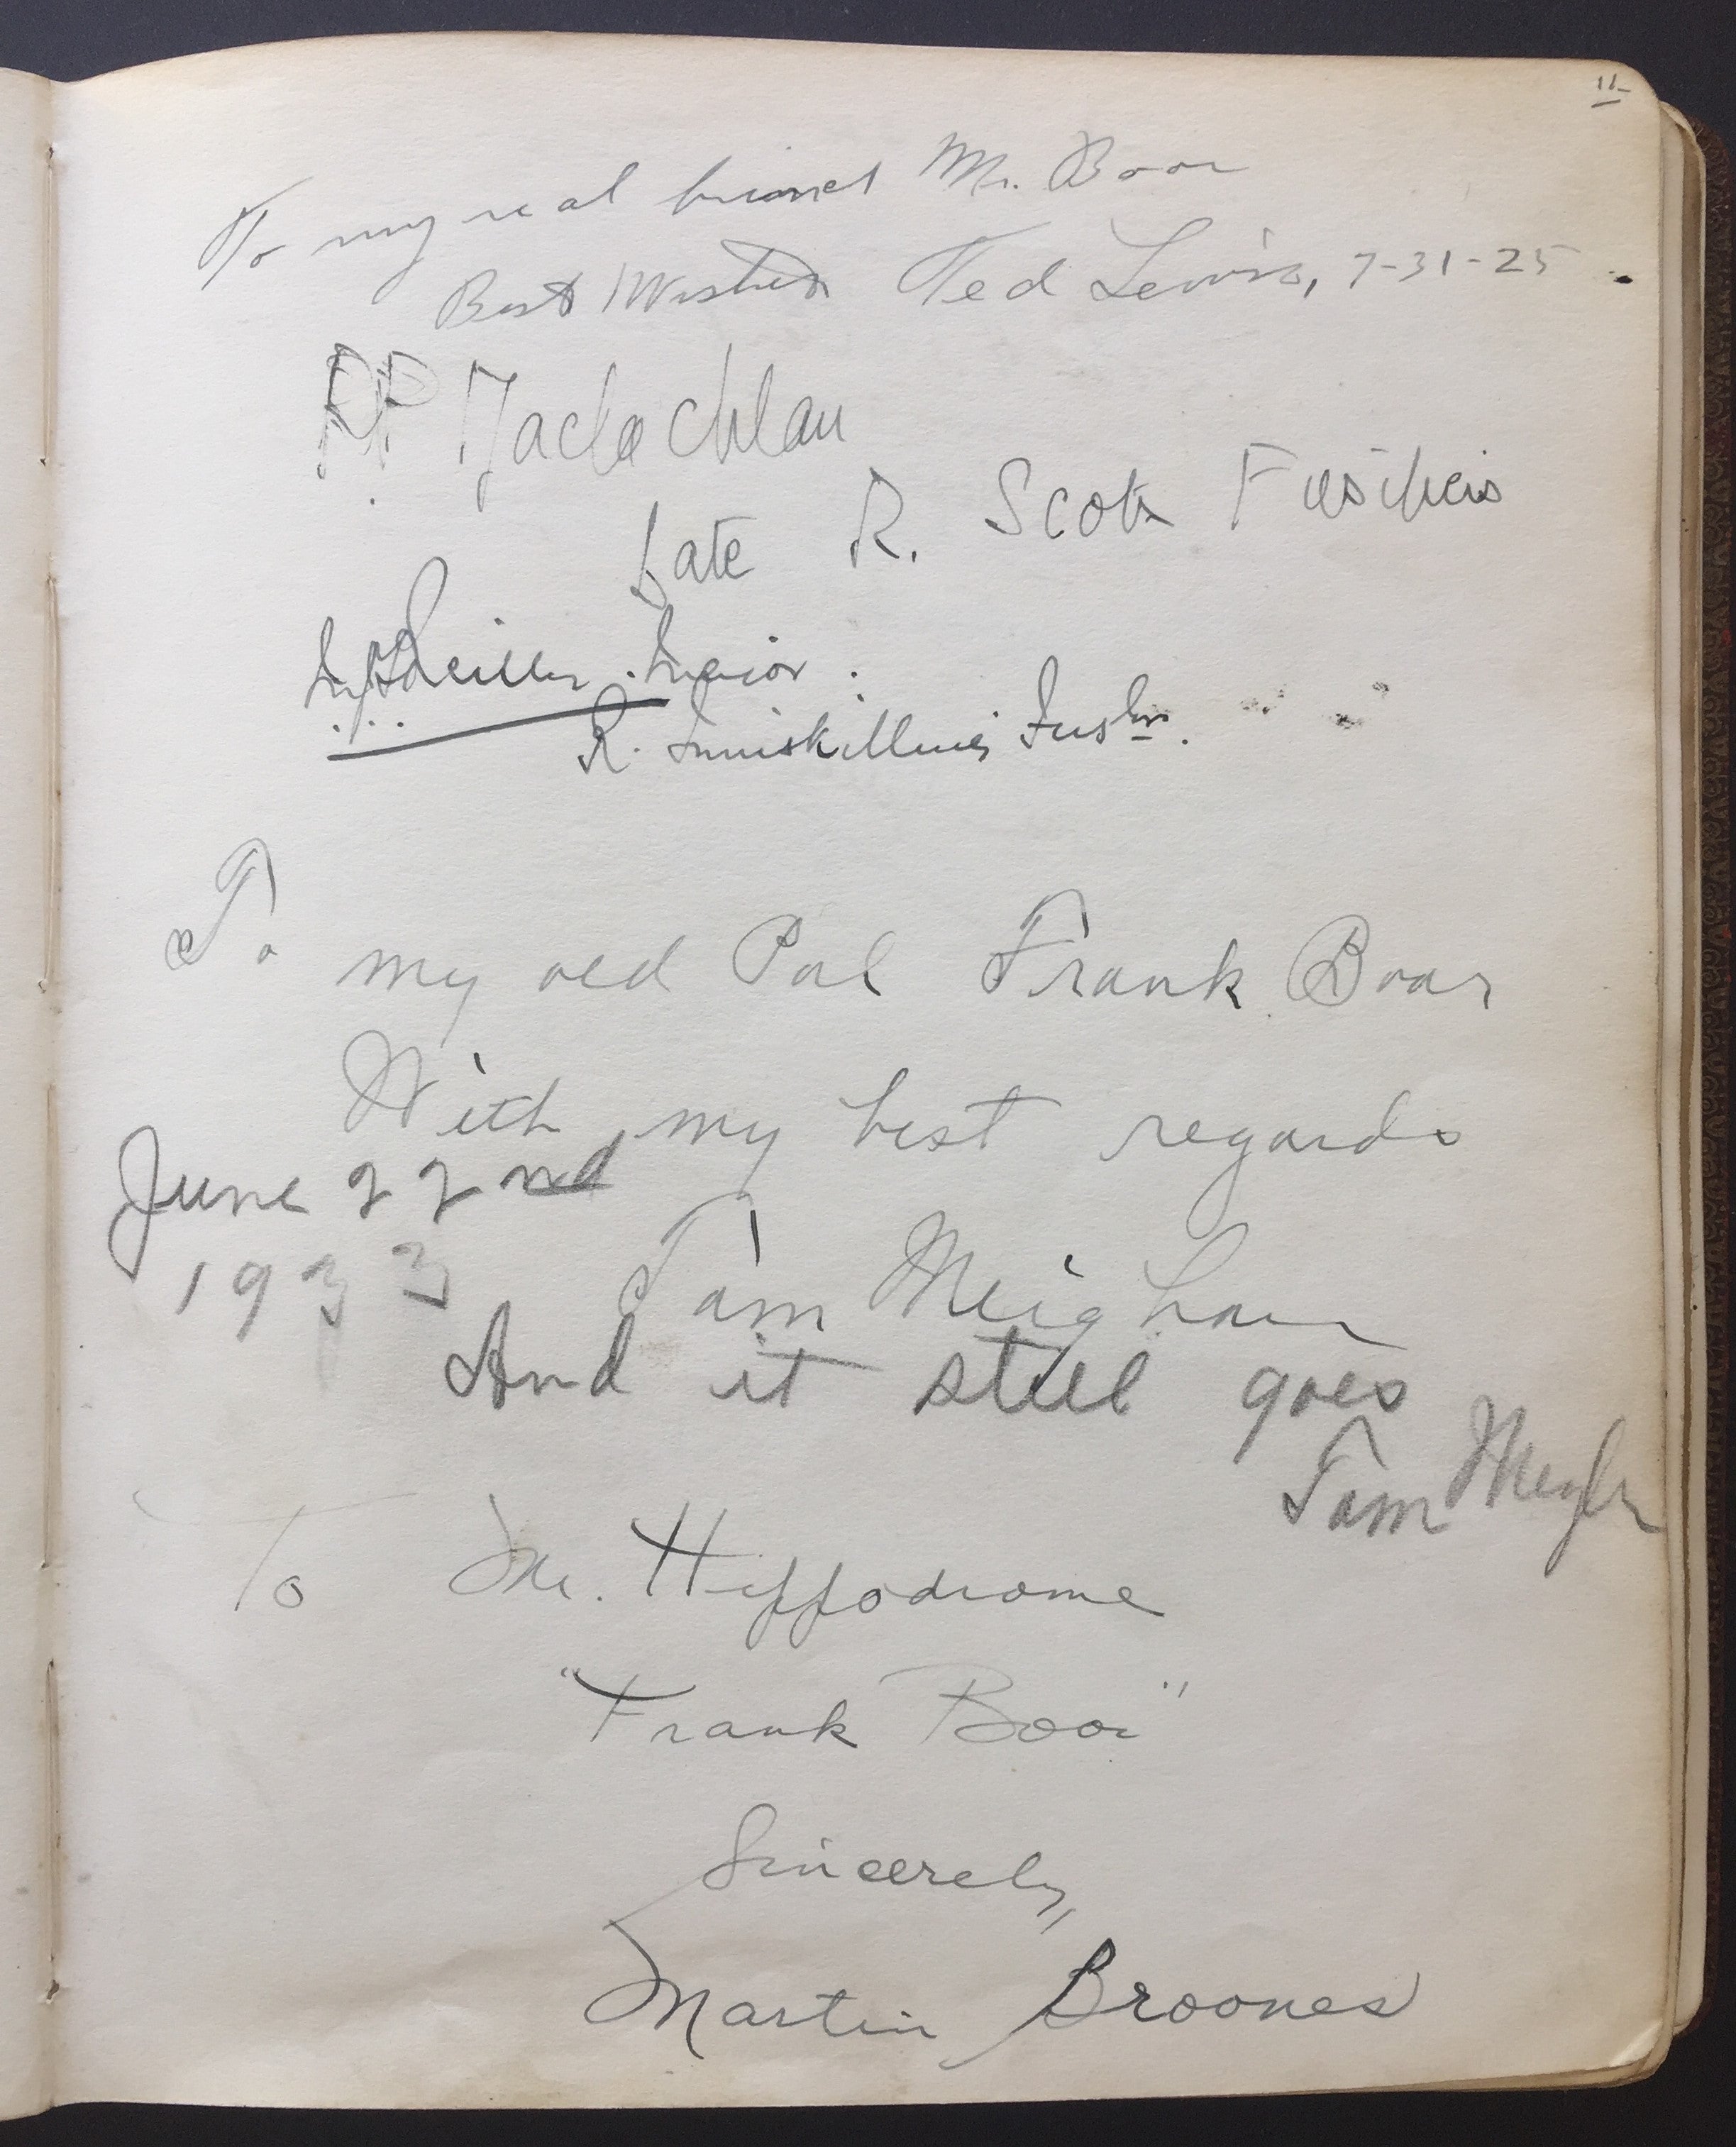 11-
To my real friend Mr. Boor
Best Wishes Ted Lewis, 7-31-25
RP Maclachlan
Late R. Scots Fusiliers
Major.
R. Inniskilling Fuslrs.
To my old Pal Frank Boar
With my best regards
June 22nd
1933
Tom Meighan
And it still goes
Tom Meighan
To Mr. Hippodrome
"Frank Boor"
Sincerely,
Martin Broones